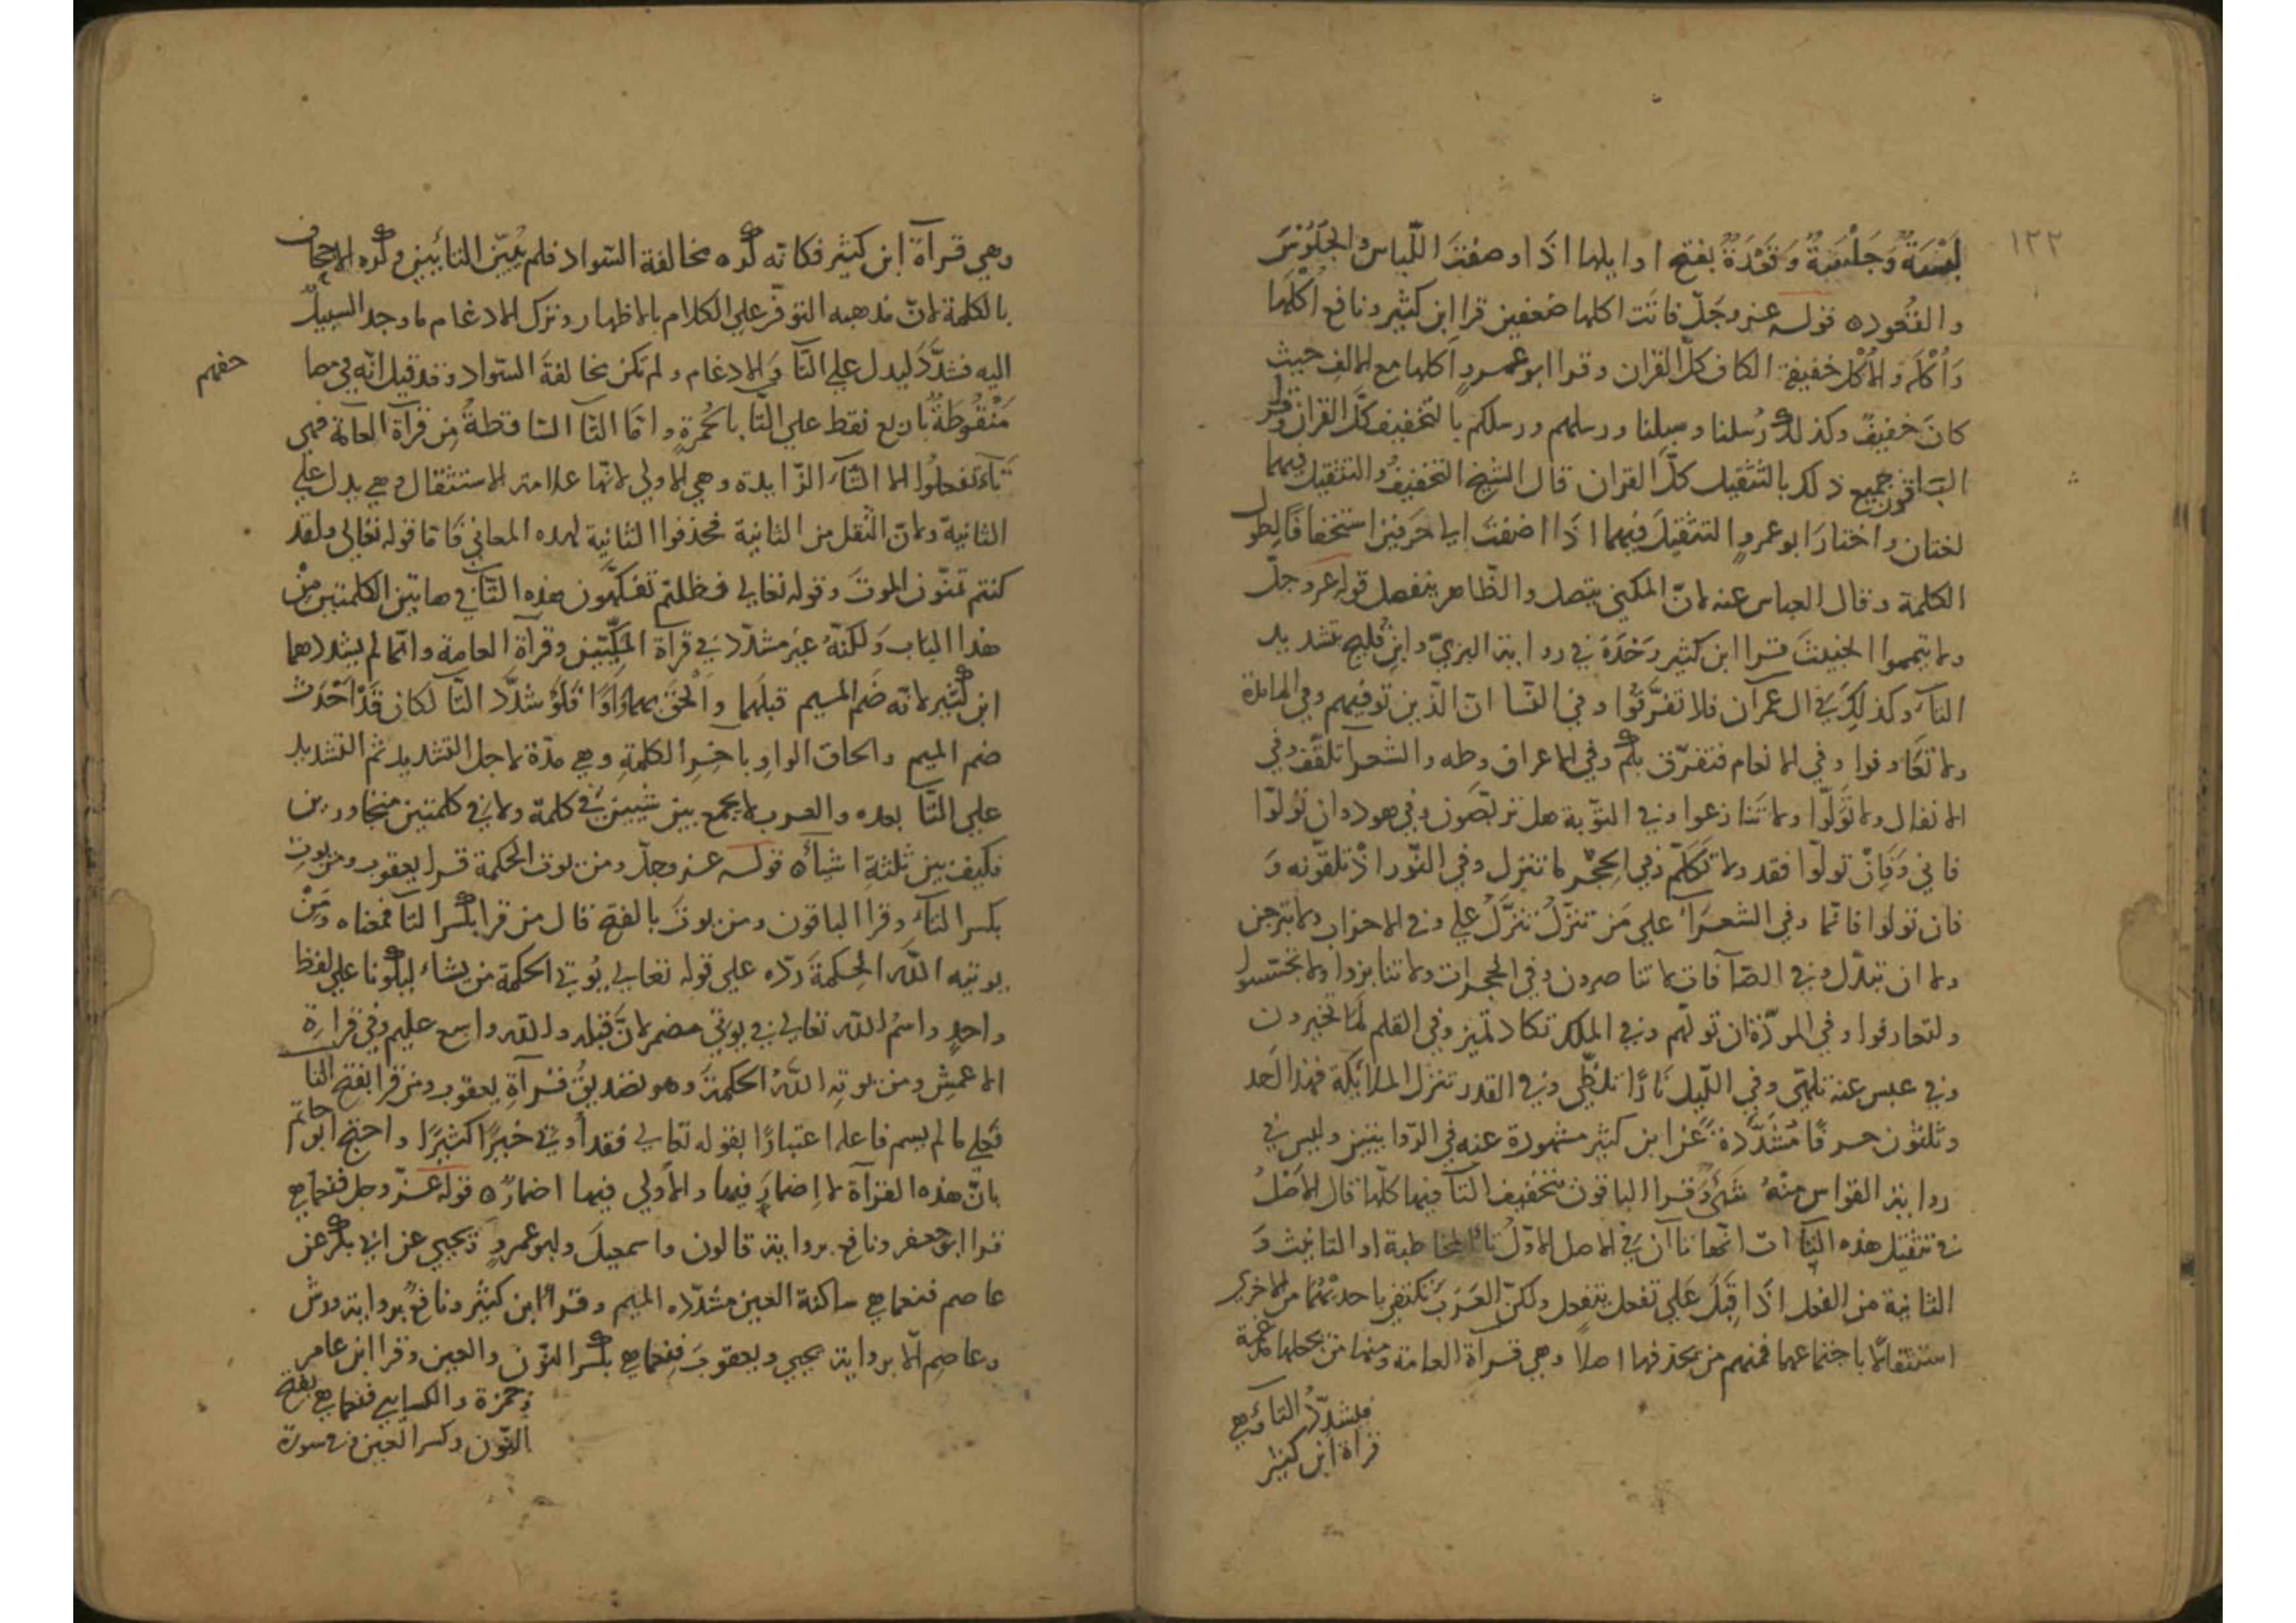 ١٢٢
لَبْسَةٌ وَجَلْسَةٌ وَقَعْدَةٌ بفتح اوايلها اذا وصفتَ اللّباس والجلُوسَ
والقُعُوده قوله عز وجلّ فاتت اكلها ضعفين قرا ابن كثير ونافع اكْلَها
وَاُكْلَه والاُكْل خفيفة الكاف كلّ القران وقرا ابو عمرو اُكلها مع الالف حيث
كانَ خفيفٌ وكذلك رُسلنا وسبلنا ورسلهم ورسلكم بالتخفيف كلّ القران وقرا
الباقون جميع ذلك بالتثقيل كلّ القران قال الشيخ التخفيفُ والتثقيل فيهما
لغتان واختارَ ابو عمرو التثقيلَ فيهما اذا اضفتَ الي حَرفين استخفافًا لِطول
الكلمة وقال العباس عنه لانّ المكني يتصل والظّاهر ينفصل قوله عز وجلّ
ولا تيمموا الخبيثَ قرا ابن كثير وَحْدَهُ في رواية البزيّ وابنِ فُليح تشديد
التآء وكذلك في ال عمرآن فلا تفرَّقُوا وفي النّسا انّ الذين توفيهم وفي المائدة
ولا تعَاونوا وفي الانعام فتفرّق بكم وفي الاعراف وطه والشعرآ تلقّف وفي
الانفال ولا تَوَلّوا ولا تَنازعوا وفي التّوبة هل تربّصون وفي هود وان تَولّوا
فاني وَفَاِنْ تولّوا فقد ولا تَكَلّم وفي الحِجْر ما تنزل وفي النّور اذْ تلقّونه وَ
فان تولوا فانّما وفي الشعرَآء علي مَن تنزّلُ تنزّلُ علي وفي الاحزاب ولا تبرجن
ولا ان تبدّل وفي الصّآفات لا تناصرون وفي الحجرات ولا تنابزوا ولا تجسسوا
ولتعارفوا وفي الموَدّة ان تولّهم وفي الملك تكاد تميز وفي القلم لَمَا تخيرون
وفي عبس عنه تلهّي وفي اللّيل نَارًا تلظّي وفي القدر تنزل الملائكة فهذا احد
وثلثون حرفًا مُشَدَّدَة عَن ابن كثير مشهورة عنه في الرّوايتين وليس في
رواية القواس مِنْهُ شَيْءٌ وقرا الباقون بتخفيف التآ فيها كلّها قال الاصْلُ
في تثقيل هذه التآات انّها تاآن في الاصل الاوّلُ تا المخاطبة او التانيث وَ
الثانية من الفعل اذا قِيلَ عَلي تفعل يتفعل ولكنّ العَرَبَ تكتفي باحديْهُما من الاخري
استثقالًا باجتماعهما فمنهم من يحذفها اصلًا وهي قراة العامة ومنهم من يجعلها مدغمة
فيشدّدُ التآء وَهي
قراة ابن كثير
وهي قرآة ابن كثير فكانه كره مخالفة السّواد فلم يُبيّن التائين وكره الاجحاف
بالكلمة لانّ مذهبه التوفّر علي الكلام بالاظهار وترك الادغام ما وجد السبيلَ
اليه فشدَّدَ ليدل علي التّآ وَالادغام ولم تكن مخالفة السّواد وقد قيل انّه في مصا
حفهم
مَنْقُوطَةٌ باربع نقط علي التّا بالحُمرةِ وامّا التّآ السّاقطةُ مِن قرآة العامّة فهي
تآءَ تفعلوا الا التّآء الزّايدة وهي الاولي لانّها علامة الاستثقال وهي يدل علي
الثانية ولانّ الثقل من الثانية فحذفوا الثانية لهذه المعاني فَامّا قوله تعالي ولقد
كنتم تمنّون الموتَ وقوله تعالي فظلتم تفكهّون هذه التّآ في هاتين الكلمتين مِنْ
هذا الباب وَلكنّهُ غير مشدّد في قرآة المكِّيّين وقرآة العامة وانّما لم يشددهما
ابن كثير لانّه ضَم الميم قبلَهما وَاَلحَقَ بهما وَاوًا فَلَوْ شدَّد التّآ لكان قَدْ اَحْدَث
ضم الميم والحاق الواوِ باخِرِ الكلمةِ وهي مدّة لاجل التشديد ثم التشديد
علي التّآ بعده والعرب لا يجمع بين شيين في كلمة ولا في كلمتين متجاورين
فكيف بين ثلثةِ اشيآء ه قوله عز وجلّ ومن يوت الحكمة قرا يعقوب ومن يوتِ
بكسر التآء وقرا الباقون ومن يوتَ بالفتح قال من قرا بكسر التآ فمعناه وَمَنْ
يوتيه اللّه الحِكمةَ ردّه علي قوله تعالي يُوتي الحكمة من يشاء ليكونا علي لفظ
واحدٍ واسمُ اللّه تعالي في يوتي مضمر لانَّ قبله واللّه واسع عليم وفي قرآءة
الاعمشِ ومن يوتِه اللّهُ الحكمةَ وهو تصديقُ قرآةِ يعقوب ومن قرا بفتح التا
فعَلي ما لم يسم فاعله اعتبارًا بقوله تعالي فقد اُوتي خيرًا كثيرًا واحتج ابو حاتم
بانّ هذه القرآة لا اِضمارَ فيها والاُولي فيها اضمارٌ ه قوله عزّ وجل فنعما هي
قرا ابو جعفر ونافع برواية قالون واسمعيلَ وابو عمروٍ وَيحيي عن ابي بكر عن
عاصم فنعما هي ساكنة العين مشدّده الميم وقرا ابن كثير ونافعٌ برواية ورش
وعاصِم الّا برواية يحيي ويعقوبَ فنعما هي بكسر النّون والعين وقرا ابن عامر
وحمزة والكسايي فنعما هي بفتح
النّون وكسر العين وفي سورة